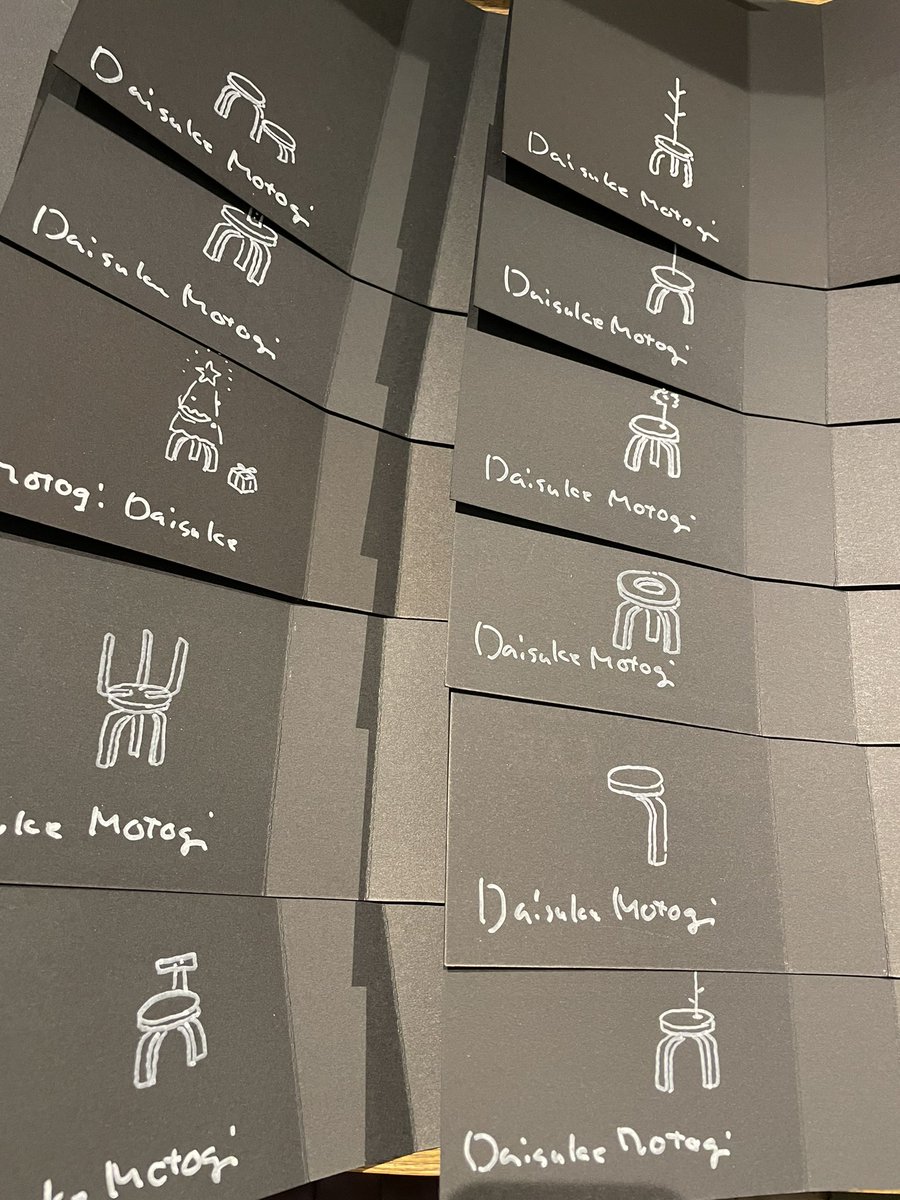 Daisuke Motogi
Daisuke Motogi
Motogi Daisuke
Motogi
Motogi
Daisuke Motogi
Daisuke Motogi
Daisuke Motogi
Daisuke Motogi
Daisuke Motogi
Daisuke Motogi